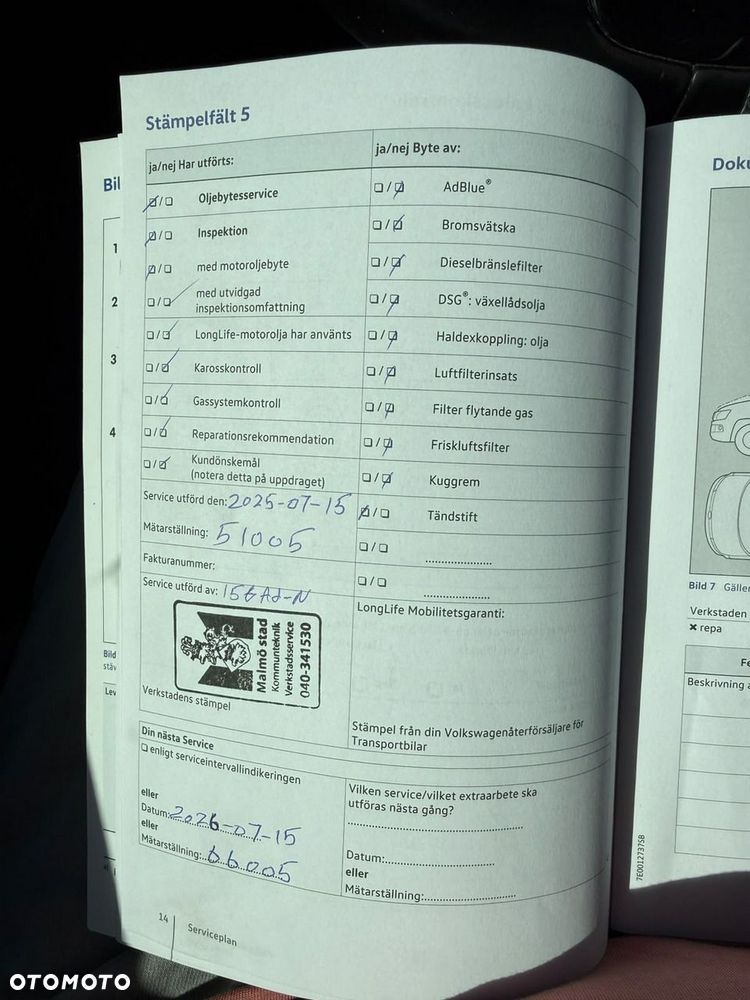 Stämpelfält 5
ja/nej Har utförts:
Oljebytesservice
Inspektion
med motoroljebyte
med utvidgad
inspektionsomfattning
LongLife-motorolja har använts
Karosskontroll
Gassystemkontroll
Reparationsrekommendation
Kundönskemål
(notera detta på uppdraget)
Service utförd den: 2025-07-15
Mätarställning: 51005
Fakturanummer:
Service utförd av:
Malmö stad
Kommunteknik
Verkstadsservice
040-341530
Verkstadens stämpel
ja/nej Byte av:
AdBlue®
Bromsvätska
Dieselbränslefilter
DSG®: växellådsolja
Haldexkoppling: olja
Luftfilterinsats
Filter flytande gas
Friskluftsfilter
Kuggrem
Tändstift
LongLife Mobilitetsgaranti:
Stämpel från din Volkswagenåterförsäljare för
Transportbilar
Din nästa Service
enligt serviceintervallindikeringen
eller
Datum: 2026-07-15
eller
Mätarställning: 66005
Vilken service/vilket extraarbete ska
utföras nästa gång?
Datum:
eller
Mätarställning:
14
Serviceplan
Bil
1
2
3
4
Bild
Lev
Doku
Bild 7 Gäller
Verkstaden
× repa
Fe
Beskrivning a
7E0012737SB
OTOMOTO